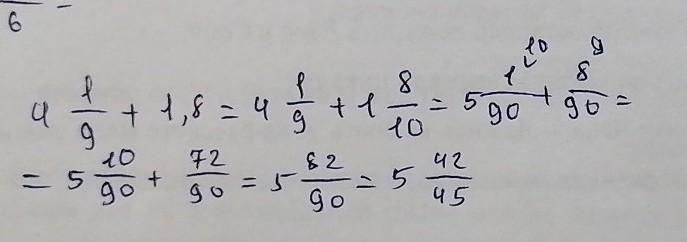 6 -
4 1/9 + 1,8 = 4 1/9 + 1 8/10 = 5 1^10/90 + 8^9/90 =
= 5 10/90 + 72/90 = 5 82/90 = 5 42/45